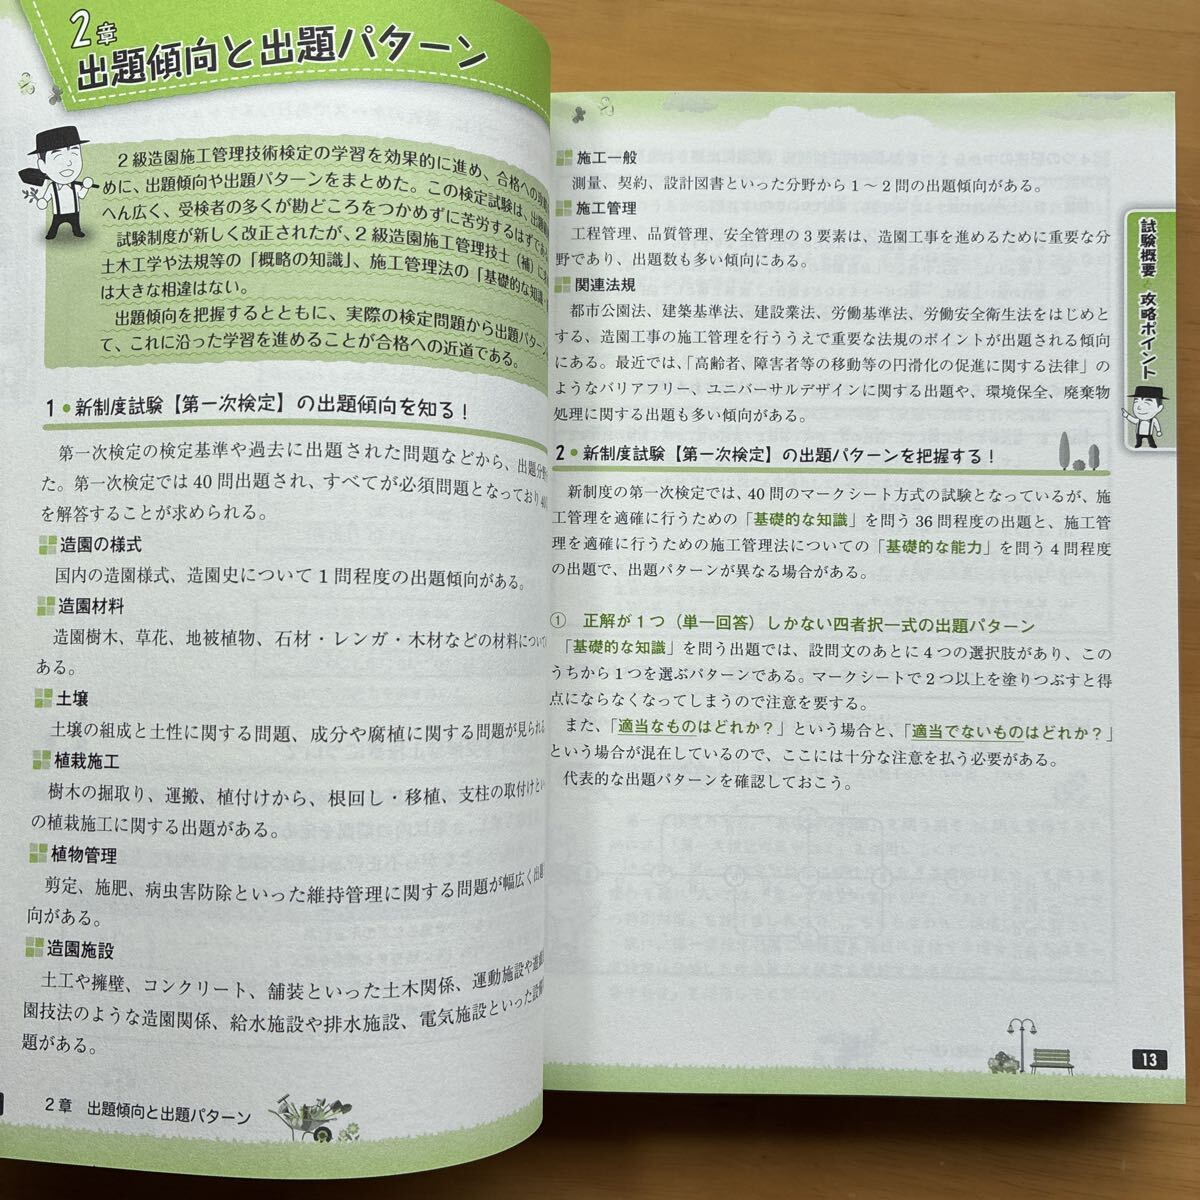 2章
出題傾向と出題パターン
2級造園施工管理技術検定の学習を効果的に進め、合格への
めに、出題傾向や出題パターンをまとめた。この検定試験は、出題
へん広く、受検者の多くが勘どころをつかめずに苦労するはずで
試験制度が新しく改正されたが、2級造園施工管理技士（補）に
土木工学や法規等の「概略の知識」、施工管理法の「基礎的な知識
は大きな相違はない。
出題傾向を把握するとともに、実際の検定問題から出題パターン
て、これに沿った学習を進めることが合格への近道である。
1●新制度試験【第一次検定】の出題傾向を知る！
第一次検定の検定基準や過去に出題された問題などから、出題分
た。第一次検定では40問出題され、すべてが必須問題となっており40
を解答することが求められる。
造園の様式
国内の造園様式、造園史について1問程度の出題傾向がある。
造園材料
造園樹木、草花、地被植物、石材・レンガ・木材などの材料について
ある。
土壌
土壌の組成と土性に関する問題、成分や腐植に関する問題が見られる
植栽施工
樹木の掘取り、運搬、植付けから、根回し・移植、支柱の取付けと
の植栽施工に関する出題がある。
植物管理
剪定、施肥、病虫害防除といった維持管理に関する問題が幅広く出題
向がある。
造園施設
土工や擁壁、コンクリート、舗装といった土木関係、運動施設や
園技法のような造園関係、給水施設や排水施設、電気施設といった設
題がある。
2章 出題傾向と出題パターン
施工一般
測量、契約、設計図書といった分野から1～2問の出題傾向がある。
施工管理
工程管理、品質管理、安全管理の3要素は、造園工事を進めるために重要な分
野であり、出題数も多い傾向にある。
関連法規
都市公園法、建築基準法、建設業法、労働基準法、労働安全衛生法をはじめと
する、造園工事の施工管理を行ううえで重要な法規のポイントが出題される傾向
にある。最近では、「高齢者、障害者等の移動等の円滑化の促進に関する法律」の
ようなバリアフリー、ユニバーサルデザインに関する出題や、環境保全、廃棄物
処理に関する出題も多い傾向がある。
2●新制度試験【第一次検定】の出題パターンを把握する！
新制度の第一次検定では、40問のマークシート方式の試験となっているが、施
工管理を適確に行うための「基礎的な知識」を問う36問程度の出題と、施工管
理を適確に行うための施工管理法についての「基礎的な能力」を問う4問程度
の出題で、出題パターンが異なる場合がある。
① 正解が1つ（単一回答）しかない四者択一式の出題パターン
「基礎的な知識」を問う出題では、設問文のあとに4つの選択肢があり、この
うちから1つを選ぶパターンである。マークシートで2つ以上を塗りつぶすと得
点にならなくなってしまうので注意を要する。
また、「適当なものはどれか？」という場合と、「適当でないものはどれか？」
という場合が混在しているので、ここには十分な注意を払う必要がある。
代表的な出題パターンを確認しておこう。
試験概要・攻略ポイント
13